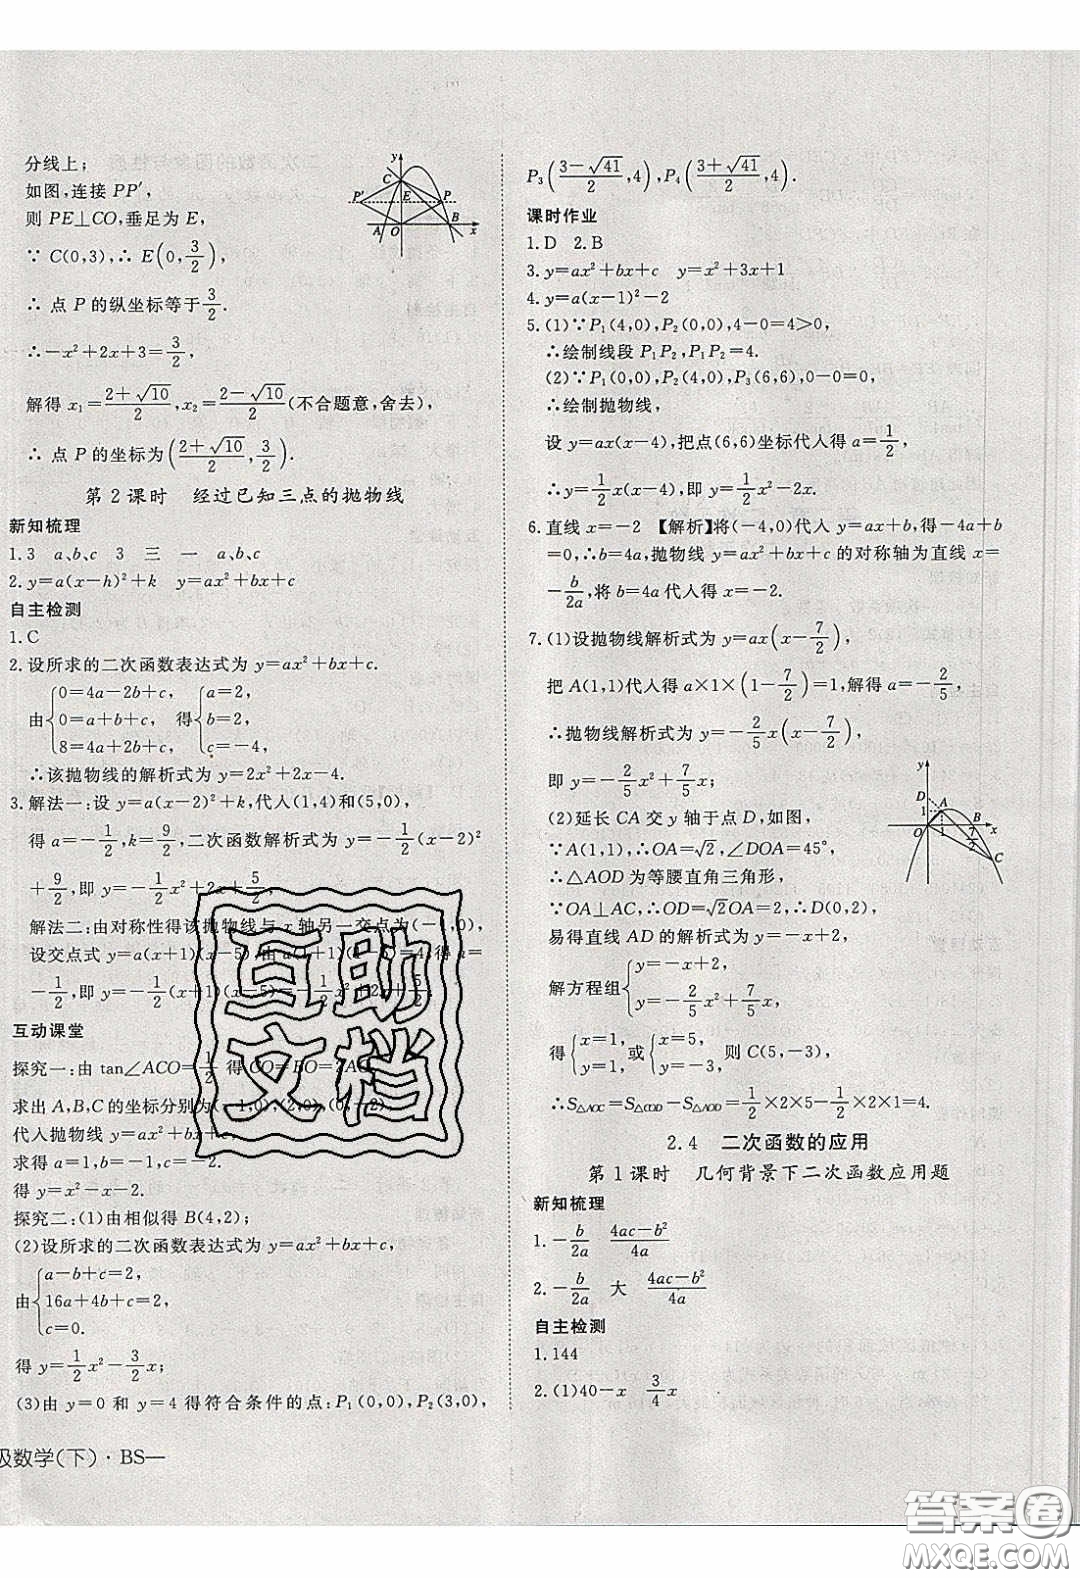 分线上;
如图,连接 PP′,
则 PE⊥CO,垂足为 E,
∵ C(0,3),∴ E(0,3/2),
∴ 点 P 的纵坐标等于3/2.
∴−x²+2x+3=3/2,
解得 x₁=(2+√10)/2,x₂=(2−√10)/2(不合题意,舍去),
∴ 点 P 的坐标为((2+√10)/2,3/2).
y
C
P′ E P
A O B x
第 2 课时 经过已知三点的抛物线
新知梳理
1.3 a、b、c 3 三 一 a、b、c
2.y=a(x−h)²+k y=ax²+bx+c
自主检测
1.C
2.设所求的二次函数表达式为 y=ax²+bx+c.
由{0=4a−2b+c, 0=a+b+c, 8=4a+2b+c, 得{a=2, b=2, c=−4,
∴该抛物线的解析式为 y=2x²+2x−4.
3.解法一:设 y=a(x−2)²+k,代人(1,4)和(5,0),
得 a=−1/2,k=9/2,二次函数解析式为 y=−1/2(x−2)²
+9/2,即 y=−1/2x²+2x+5/2.
解法二:由对称性得该抛物线与 x 轴另一交点为(−1,0),
设交点式 y=a(x+1)(x−5),由 a(1+1)(1−5)=4,得 a=
−1/2,即 y=−1/2(x+1)(x−5)=−1/2x²+2x+5/2.
互动课堂
探究一:由 tan∠ACO=1/2 得 CO=BO=2AO,
求出 A,B,C 的坐标分别为(−1,0),(2,0),(0,−2)
代人抛物线 y=ax²+bx+c,
求得 a=1,b=−1,c=−2.
得 y=x²−x−2.
探究二:(1)由相似得 B(4,2);
(2)设所求的二次函数表达式为 y=ax²+bx+c,
由{a−b+c=2, 16a+4b+c=2, c=0.
得 y=1/2x²−3/2x;
(3)由 y=0 和 y=4 得符合条件的点:P₁(0,0),P₂(3,0),
级数学(下)·BS—
P₃((3−√41)/2,4),P₄((3+√41)/2,4).
课时作业
1.D 2.B
3.y=ax²+bx+c y=x²+3x+1
4.y=a(x−1)²−2
5.(1)∵P₁(4,0),P₂(0,0),4−0=4>0,
∴绘制线段 P₁P₂,P₁P₂=4.
(2)∵P₁(0,0),P₂(4,0),P₃(6,6),0−0=0,
∴绘制抛物线,
设 y=ax(x−4),把点(6,6)坐标代人得 a=1/2,
∴y=1/2x(x−4),即 y=1/2x²−2x.
6.直线 x=−2 【解析】将(−4,0)代人 y=ax+b,得−4a+b
=0,∴b=4a,抛物线 y=ax²+bx+c 的对称轴为直线 x=
−b/2a,将 b=4a 代人得 x=−2.
7.(1)设抛物线解析式为 y=ax(x−7/2),
把 A(1,1)代人得 a×1×(1−7/2)=1,解得 a=−2/5,
∴抛物线解析式为 y=−2/5x(x−7/2),
即 y=−2/5x²+7/5x;
(2)延长 CA 交 y 轴于点 D,如图,
∵A(1,1),∴OA=√2,∠DOA=45°,
∴△AOD 为等腰直角三角形,
∵OA⊥AC,∴OD=√2OA=2,∴D(0,2),
易得直线 AD 的解析式为 y=−x+2,
解方程组{y=−x+2, y=−2/5x²+7/5x,
得{x=1, y=1, 或{x=5, y=−3, 则 C(5,−3),
∴S△AOC=S△COD−S△AOD=1/2×2×5−1/2×2×1=4.
y
D A
1 B
O 1 7/2 x
C
2.4 二次函数的应用
第 1 课时 几何背景下二次函数应用题
新知梳理
1.−b/2a (4ac−b²)/4a
2.−b/2a 大 (4ac−b²)/4a
自主检测
1.144
2.(1)40−x 3/4x
互助
文档
答案卷
MXQE.COM